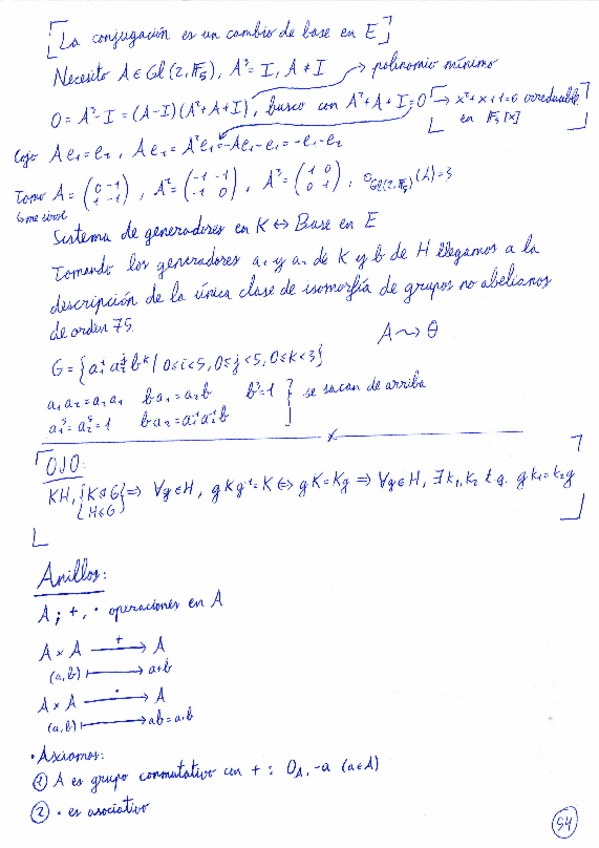 [La conjugación es un cambio de base en E]
Necesito A ∈ Gl(2, F₅), A³ = I, A ≠ I → polinomio mínimo
0 = A³ - I = (A-I)(A²+A+I), busco con A²+A+I=0 → x²+x+1=0 irreducible en F₅[x]
Cojo Ae₁=e₂, Ae₂ = A²e₁ = -Ae₁-e₁ = -e₁-e₂
Tomo A = (0 -1 / 1 -1), A² = (-1 -1 / -1 0), A³ = (1 0 / 0 1), o_Gl(2,F₅)(A)=3
↳ me sirve
Sistema de generadores en K ↔ Base en E
Tomando los generadores a₁ y a₂ de K y b de H llegamos a la
descripción de la única clase de isomorfía de grupos no abelianos
de orden 75.
A ⇝ θ
G = {a₁ⁱ a₂ʲ bᵏ | 0≤i<5, 0≤j<5, 0≤k<3}
a₁a₂=a₂a₁ ba₁=a₂b b³=1 } se sacan de arriba
a₁⁵=a₂⁵=1 ba₂=a₁⁻¹a₂⁻¹b
OJO:
KH, {K⊴G / H≤G} ⇒ ∀g∈H, gKg⁻¹=K ⇔ gK=Kg ⇒ ∀g∈H, ∃k₁,k₂ t.q. gk₁=k₂g
Anillos:
A; +, · operaciones en A
A × A —+→ A
(a,b) ↦ a+b
A × A —·→ A
(a,b) ↦ ab=a·b
• Axiomas:
① A es grupo conmutativo con + : 0_A, -a (a∈A)
② · es asociativo
54